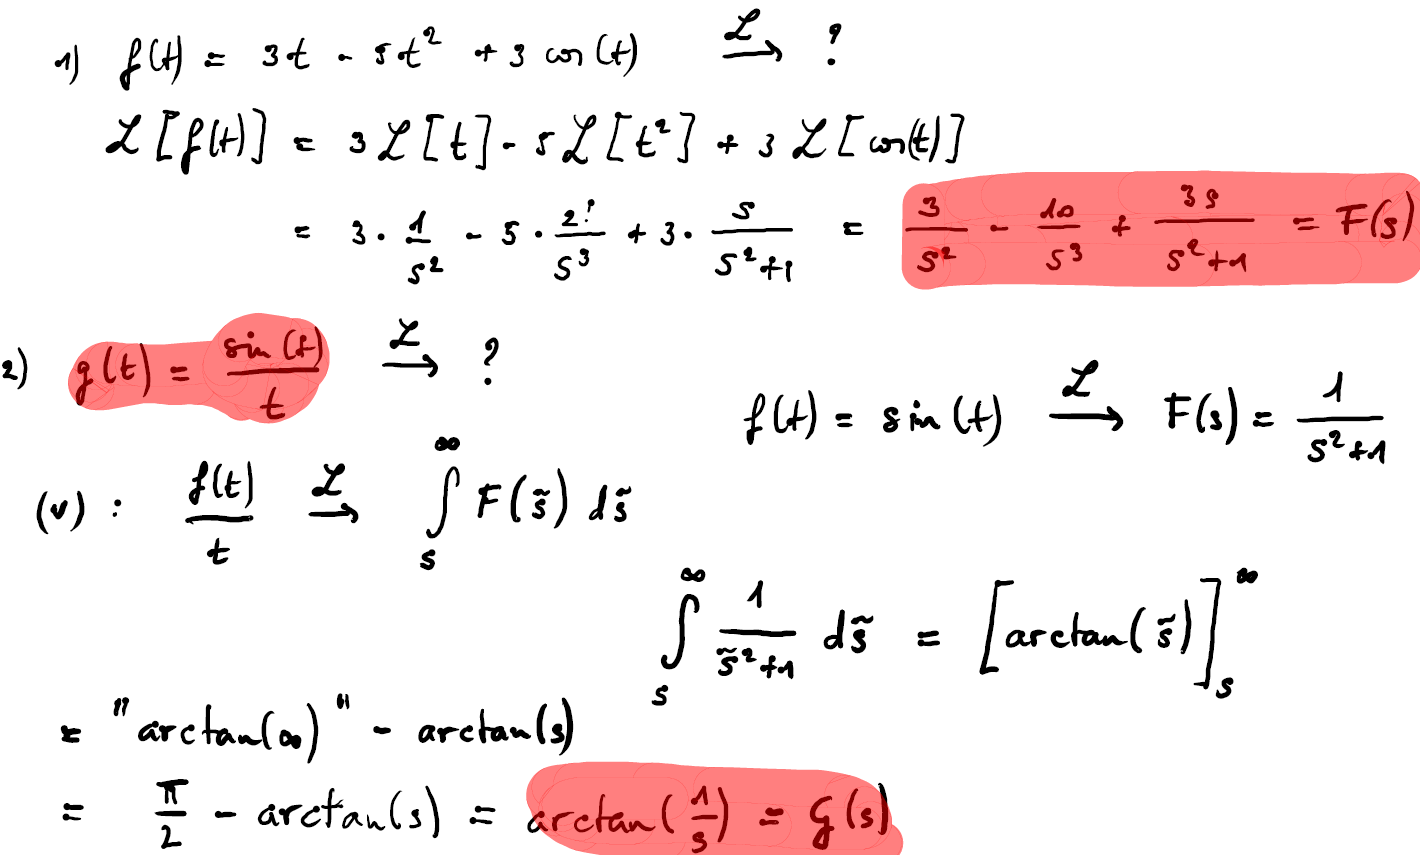 1) f(t) = 3t - 5t² + 3 cos(t) ℒ→ ?
ℒ[f(t)] = 3ℒ[t] - 5ℒ[t²] + 3ℒ[cos(t)]
= 3 · 1/s² - 5 · 2!/s³ + 3 · s/(s²+1) = 3/s² - 10/s³ + 3s/(s²+1) = F(s)
2) g(t) = sin(t)/t ℒ→ ?
f(t) = sin(t) ℒ→ F(s) = 1/(s²+1)
(v) : f(t)/t ℒ→ ∫_s^∞ F(s̃) ds̃
∫_s^∞ 1/(s̃²+1) ds̃ = [arctan(s̃)]_s^∞
= "arctan(∞)" - arctan(s)
= π/2 - arctan(s) = arctan(1/s) = G(s)